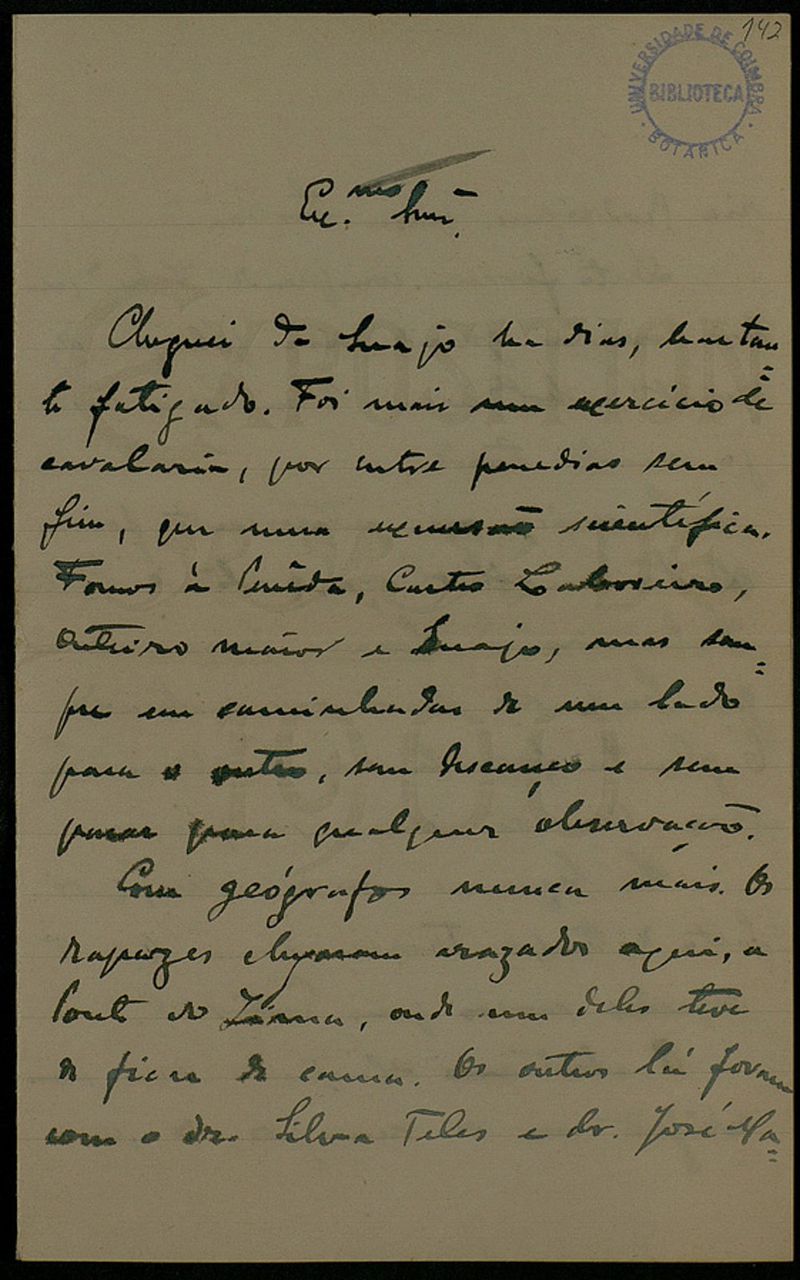 142
UNIVERSIDADE DE COIMBRA
BIBLIOTECA
BOTANICA
Ex.mo Snr.
Cheguei do Suajo ha dias, bastan=
te fatigado. Foi mais um exercicio de
cavalaria, por entre penedias sem
fim, que uma excursão scientífica.
Fomos á Penêda, Castro Laboreiro,
Outeiro maior e Suajo, mas sem=
pre em caminhadas de um lado
para o outro, sem descanço e sem
parar para qualquer observação.
Com geógrafos nunca mais. Os
rapazes chegaram arrazados aqui, a
Ponte do Lima, onde um deles teve
de ficar de cama. Os outros lá foram
com o dr. Silva Teles e dr. José Ma=